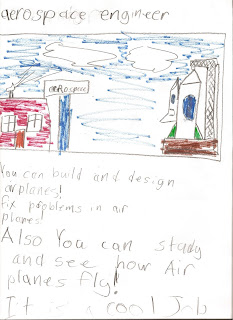 aerospace engineer
aerospace
You can build and design
airplanes!
fix problems in air
planes!
Also You can study
and see how Air
planes fly!
It is a cool Job